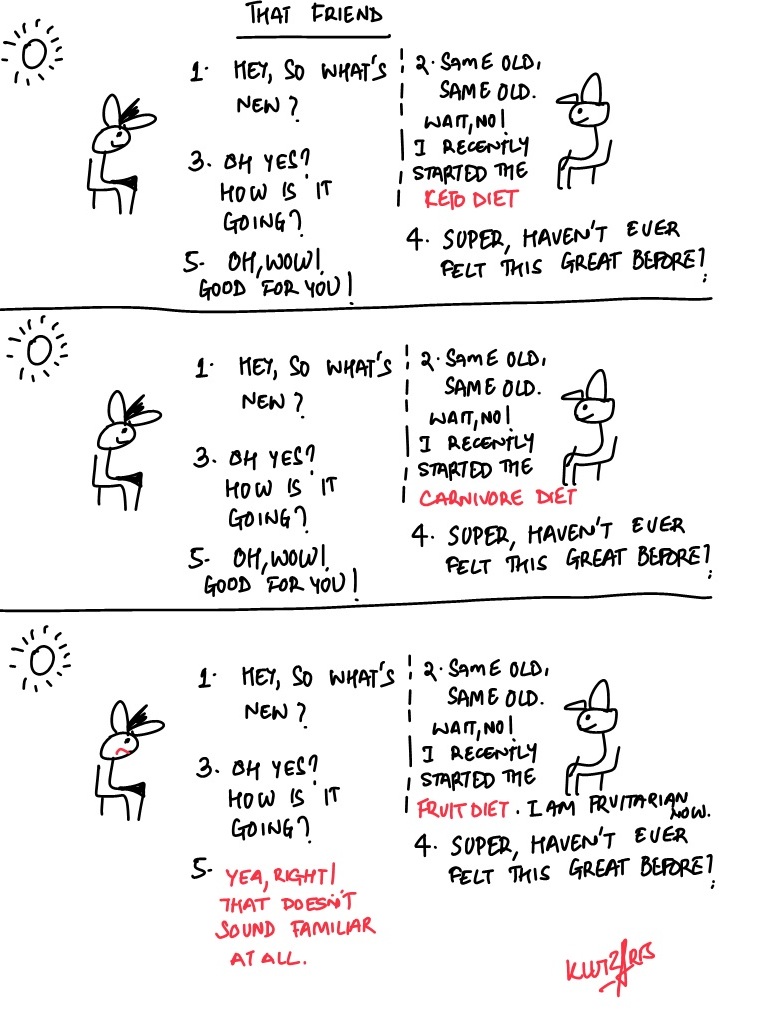 THAT FRIEND
1. HEY, SO WHAT'S
NEW?
2. SAME OLD,
SAME OLD.
WAIT, NO!
I RECENTLY
STARTED THE
KETO DIET
3. OH YES?
HOW IS IT
GOING?
4. SUPER, HAVEN'T EVER
FELT THIS GREAT BEFORE!
5. OH, WOW!
GOOD FOR YOU!
1. HEY, SO WHAT'S
NEW?
2. SAME OLD,
SAME OLD.
WAIT, NO!
I RECENTLY
STARTED THE
CARNIVORE DIET
3. OH YES?
HOW IS IT
GOING?
4. SUPER, HAVEN'T EVER
FELT THIS GREAT BEFORE!
5. OH, WOW!
GOOD FOR YOU!
1. HEY, SO WHAT'S
NEW?
2. SAME OLD,
SAME OLD.
WAIT, NO!
I RECENTLY
STARTED THE
FRUIT DIET. I AM FRUITARIAN
NOW.
3. OH YES?
HOW IS IT
GOING?
4. SUPER, HAVEN'T EVER
FELT THIS GREAT BEFORE!
5. YEA, RIGHT!
THAT DOESN'T
SOUND FAMILIAR
AT ALL.